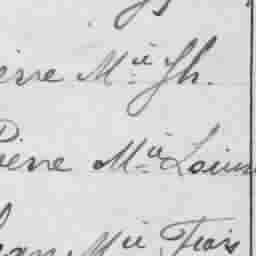 ierre M.ie Jh.
Pierre M.ie Louis
Jean M.ie Frois